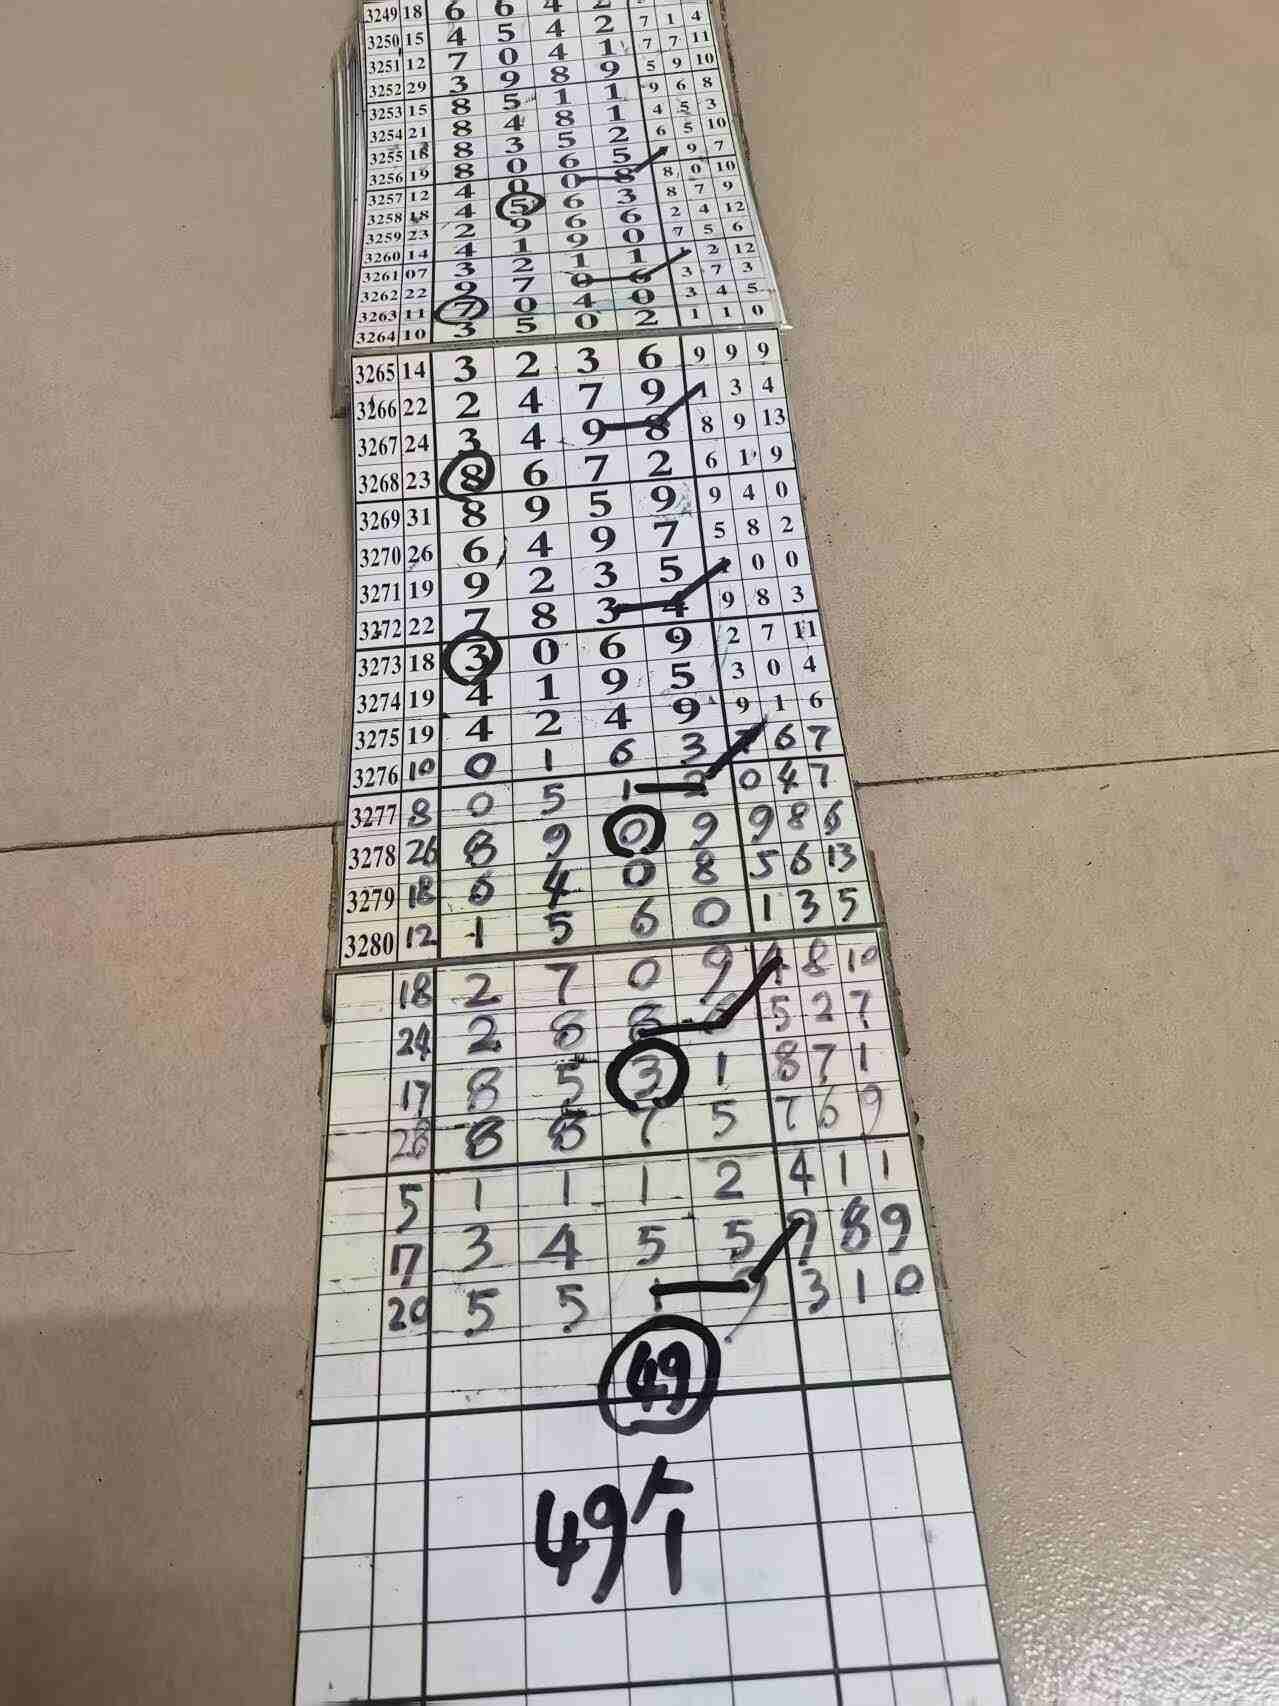 3249 18 6 6 4 2
3250 15 4 5 4 2 7 1 4
3251 12 7 0 4 1 7 7 11
3252 29 3 9 8 9 5 9 10
3253 15 8 5 1 1 9 6 8
3254 21 8 4 8 1 4 5 3
3255 18 8 3 5 2 6 5 10
3256 19 8 0 6 5 9 7
3257 12 4 0 0 8 8 0 10
3258 18 4 5 6 3 8 7 9
3259 23 2 9 6 6 2 4 12
3260 14 4 1 9 0 7 5 6
3261 07 3 2 1 1 2 12
3262 22 9 7 0 6 3 7 3
3263 11 7 0 4 0 3 4 5
3264 10 3 5 0 2 1 1 0
3265 14 3 2 3 6 9 9 9
3266 22 2 4 7 9 1 3 4
3267 24 3 4 9 8 8 9 13
3268 23 8 6 7 2 6 1 9
3269 31 8 9 5 9 9 4 0
3270 26 6 4 9 7 5 8 2
3271 19 9 2 3 5 0 0
3272 22 7 8 3 4 9 8 3
3273 18 3 0 6 9 2 7 11
3274 19 4 1 9 5 3 0 4
3275 19 4 2 4 9 9 1 6
3276 10 0 1 6 3 7 6 7
3277 8 0 5 1 2 0 4 7
3278 26 8 9 0 9 9 8 6
3279 18 6 4 0 8 5 6 13
3280 12 1 5 6 0 1 3 5
18 2 7 0 9 4 8 10
24 2 8 8 6 5 2 7
17 8 5 3 1 8 7 1
28 8 8 7 5 7 6 9
5 1 1 1 2 4 1 1
17 3 4 5 5 9 8 9
20 5 5 1 9 3 1 0
49
49个